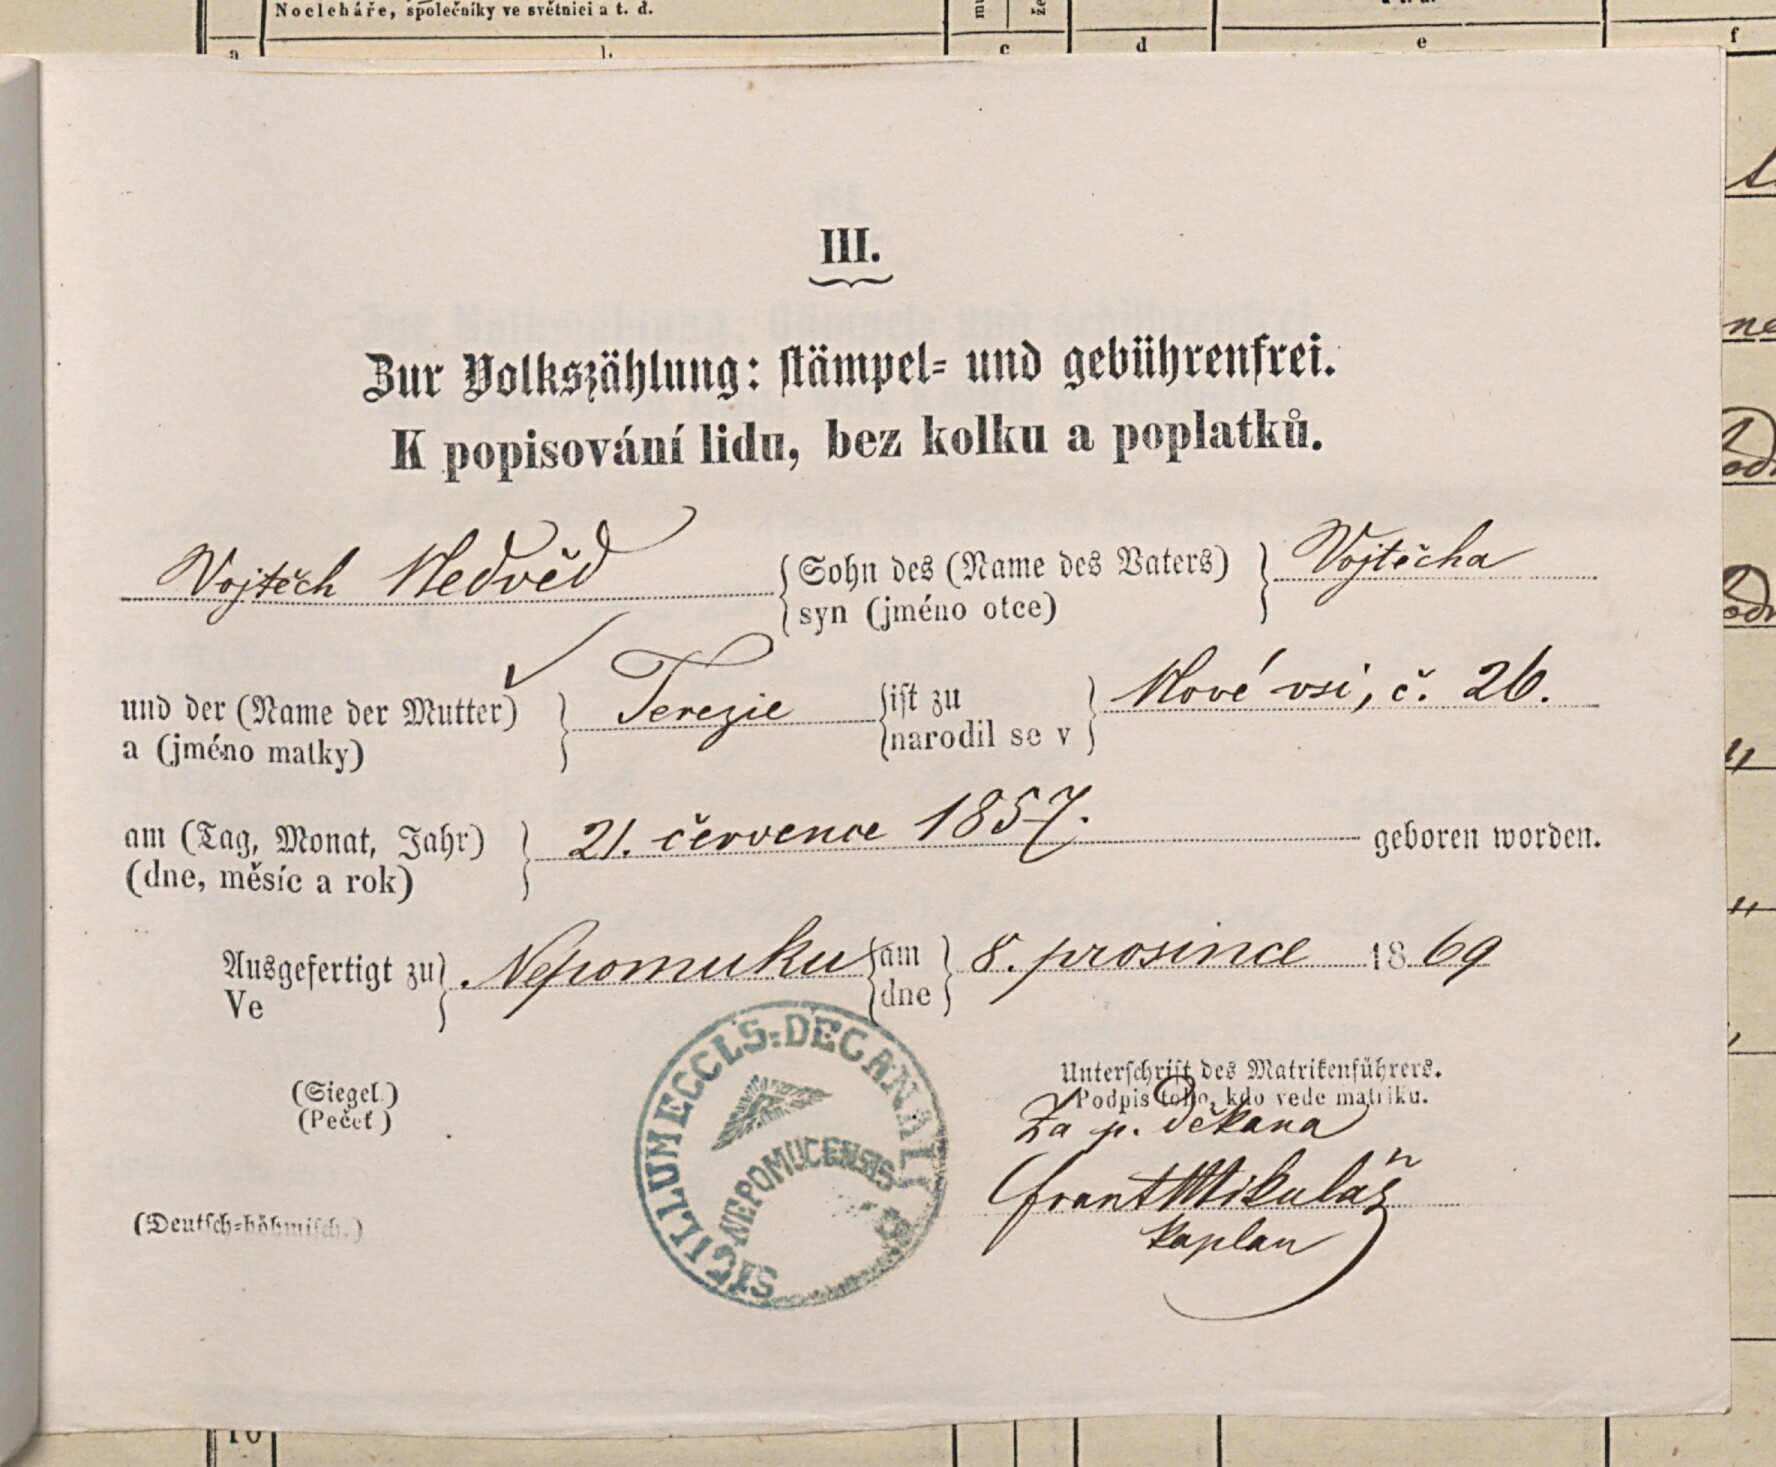 Nocleháře, společníky ve světnici a t. d.
a b. c d e f
III.
Zur Volkszählung: stämpel- und gebührenfrei.
K popisování lidu, bez kolku a poplatků.
Vojtěch Nedvěd { Sohn des (Name des Vaters) } Vojtěcha
syn (jméno otce)
und der (Name der Mutter) } Terezie { ist zu } Nové vsi, č. 26.
a (jméno matky) narodil se v
am (Tag, Monat, Jahr) } 21. července 1857. geboren worden.
(dne, měsíc a rok)
Ausgefertigt zu } Nepomuku { am } 8. prosince 1869
Ve dne
(Siegel.)
(Pečeť)
SIGILLUM ECCLS: DECANAT
NEPOMUCENSIS
Unterschrift des Matrikenführers.
Podpis toho, kdo vede matriku.
Za p. Děkana
Frant Mikuláš
kaplan
(Deutsch-böhmisch.)
10